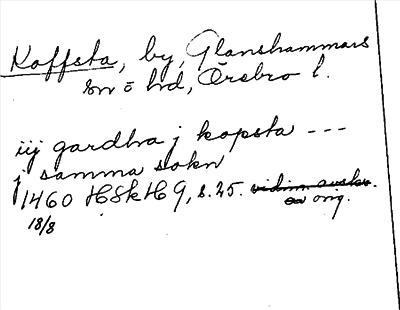 Kaffsta, by, Glanshammars
sn o hd, Örebro l.
iij gardha j kopsta ---
j samma sokn
1460 HSkH 9, s. 25. vidim. avskr.
av orig.
18/8